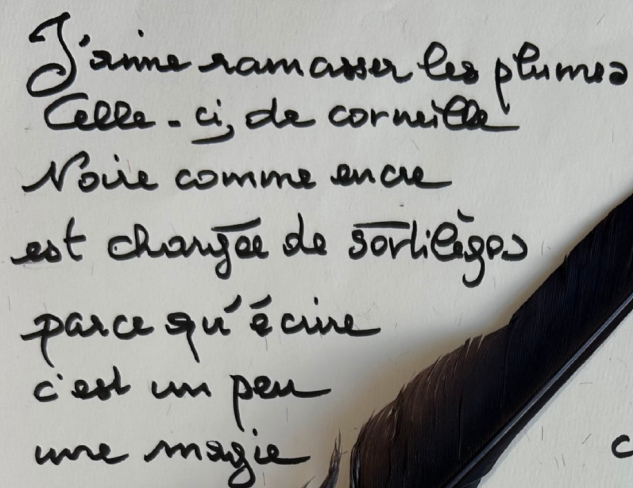 J'aime ramasser les plumes
Celle-ci, de corneille
Noire comme encre
est chargée de sortilèges
parce qu'écrire
c'est un peu
une magie